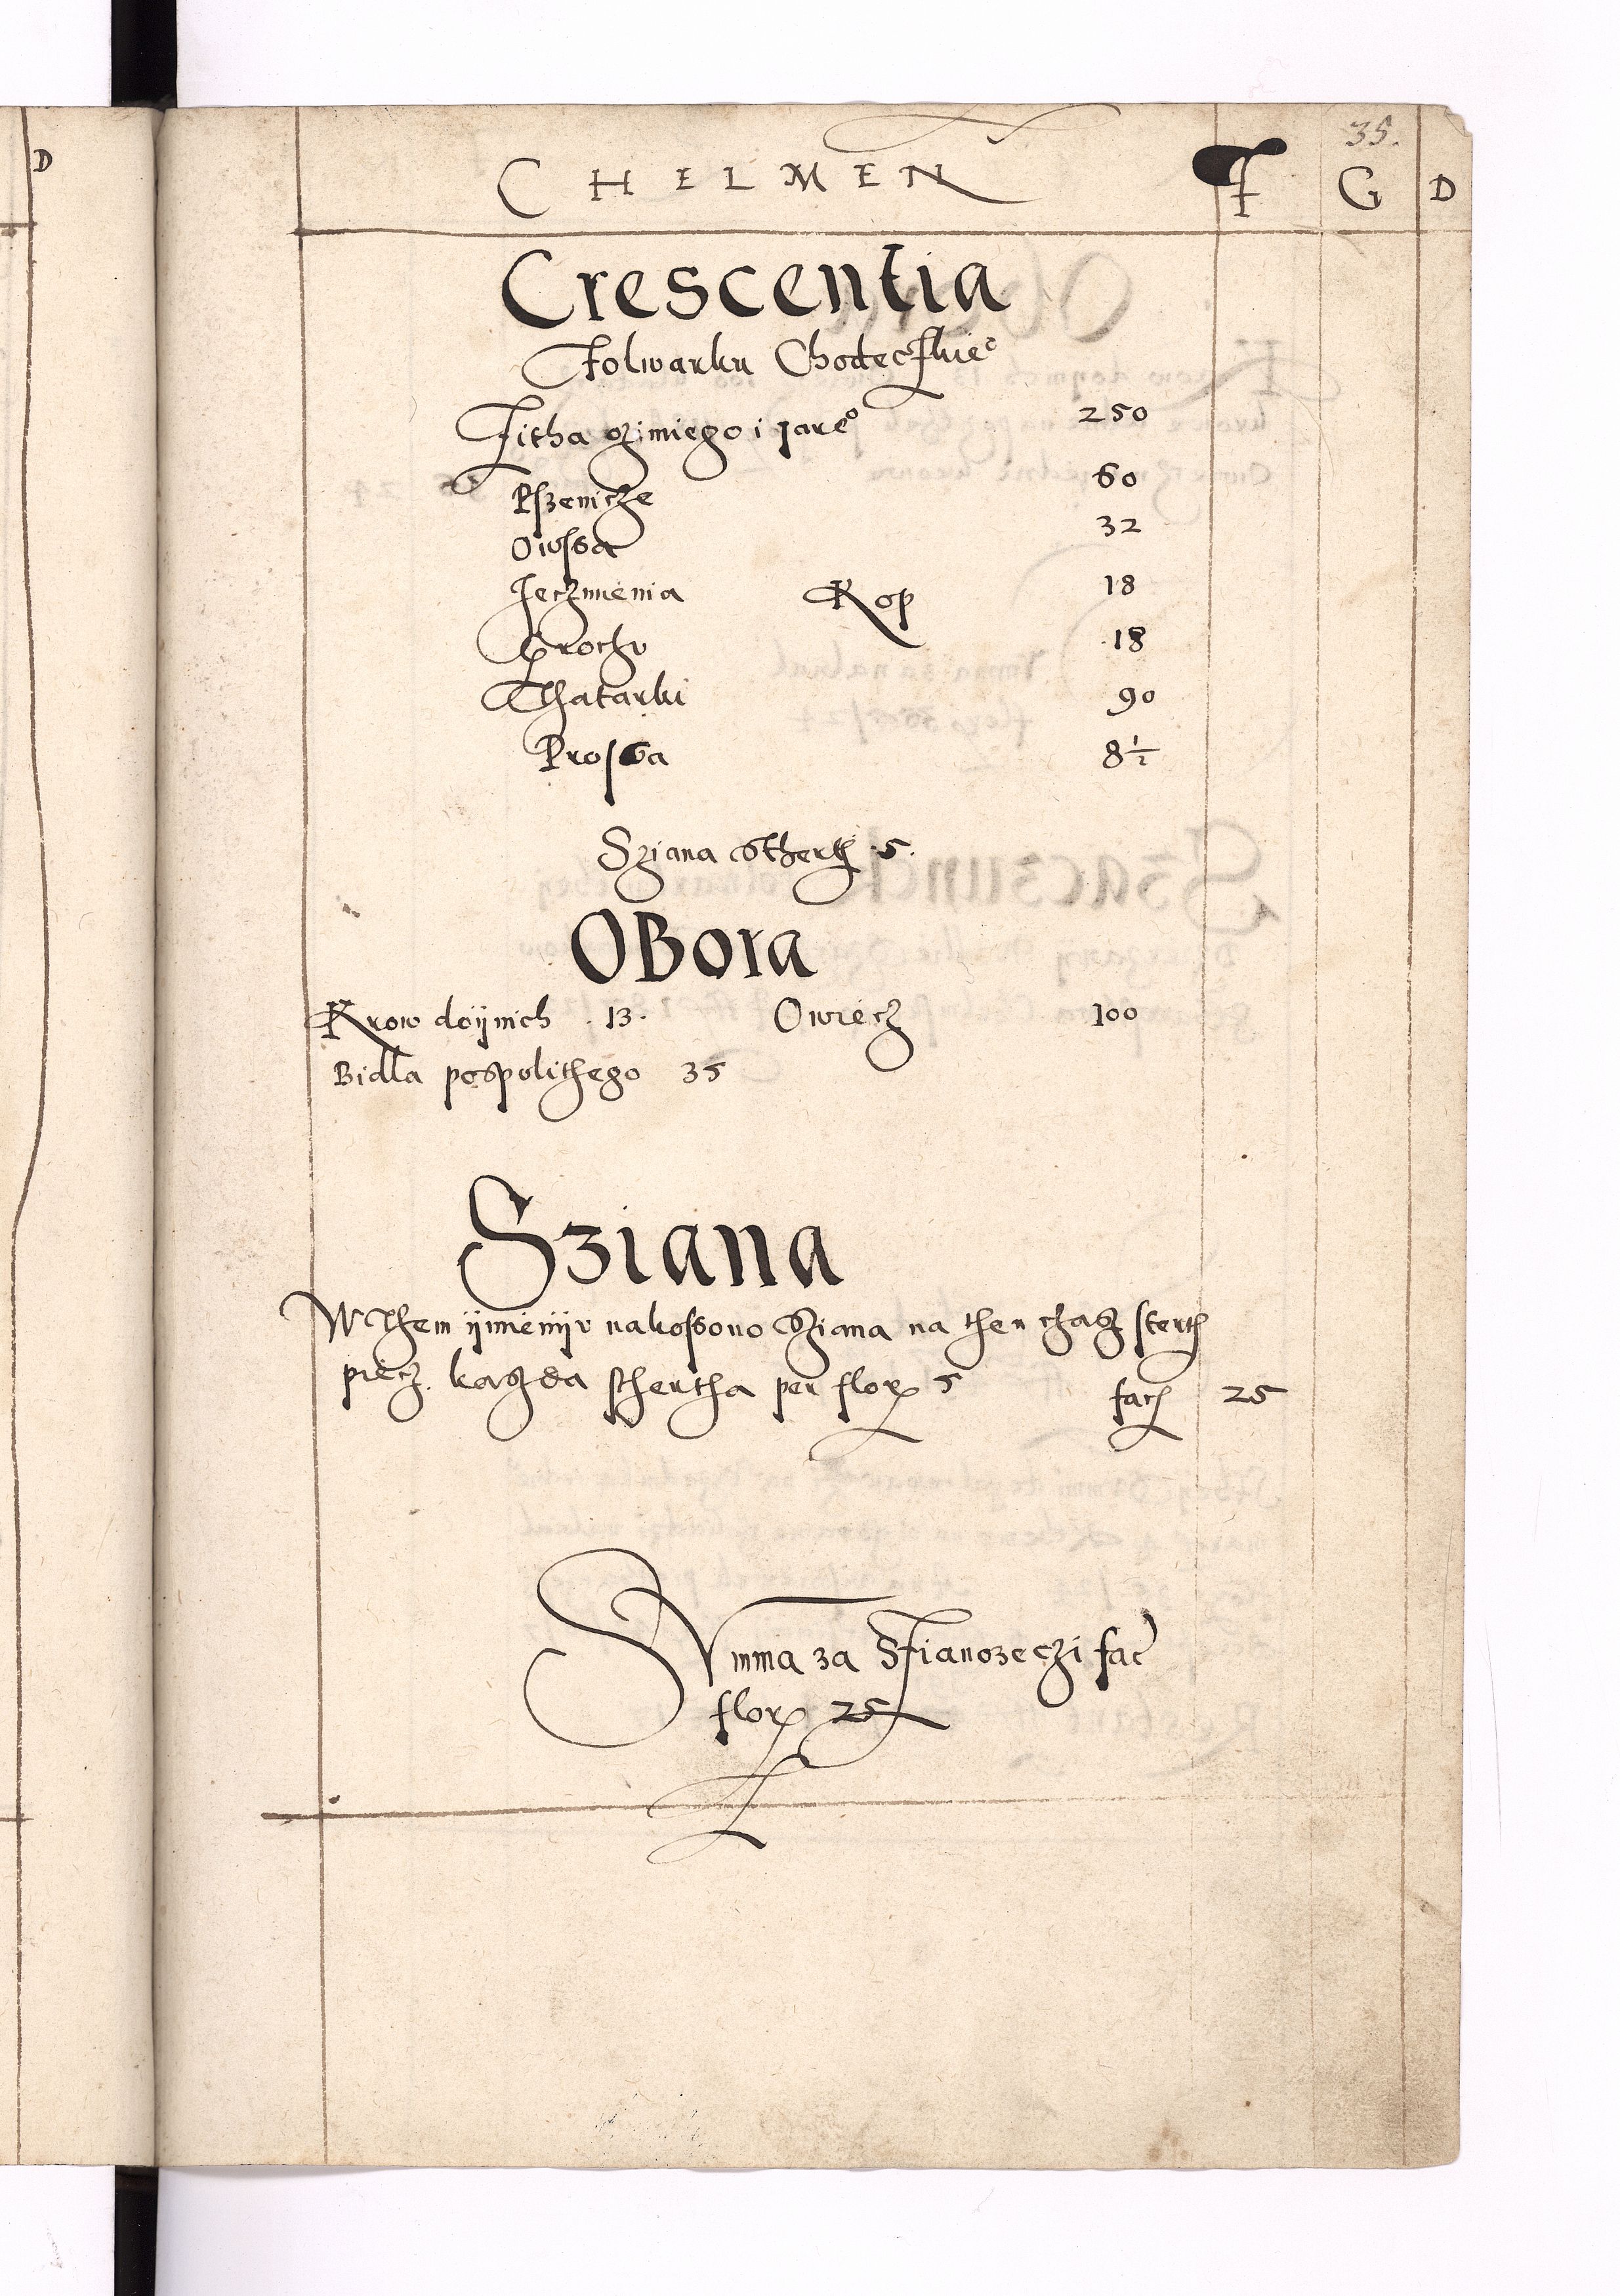 35.
D CHELMEN F G D
Crescentia
Folwarku Chodecskie͡
Zitha ozimiego i jare͡o 250
Pszenicze 60
Owssa 32
Jeczmienia Kop 18
Grochv 18
Thatarki 90
Prossa 8 1/2
Sziana Stherth 5.
OBora
Krow doijnich . 13 . Owiecz 100
Bidla pospolithego 35
Sziana
W Them ijmienijv nakossono Sziana na then czasz sterth
piecz. kazda sthertha per flor 5 fact 25
Svmma za Sianozeczi fac
flor 25